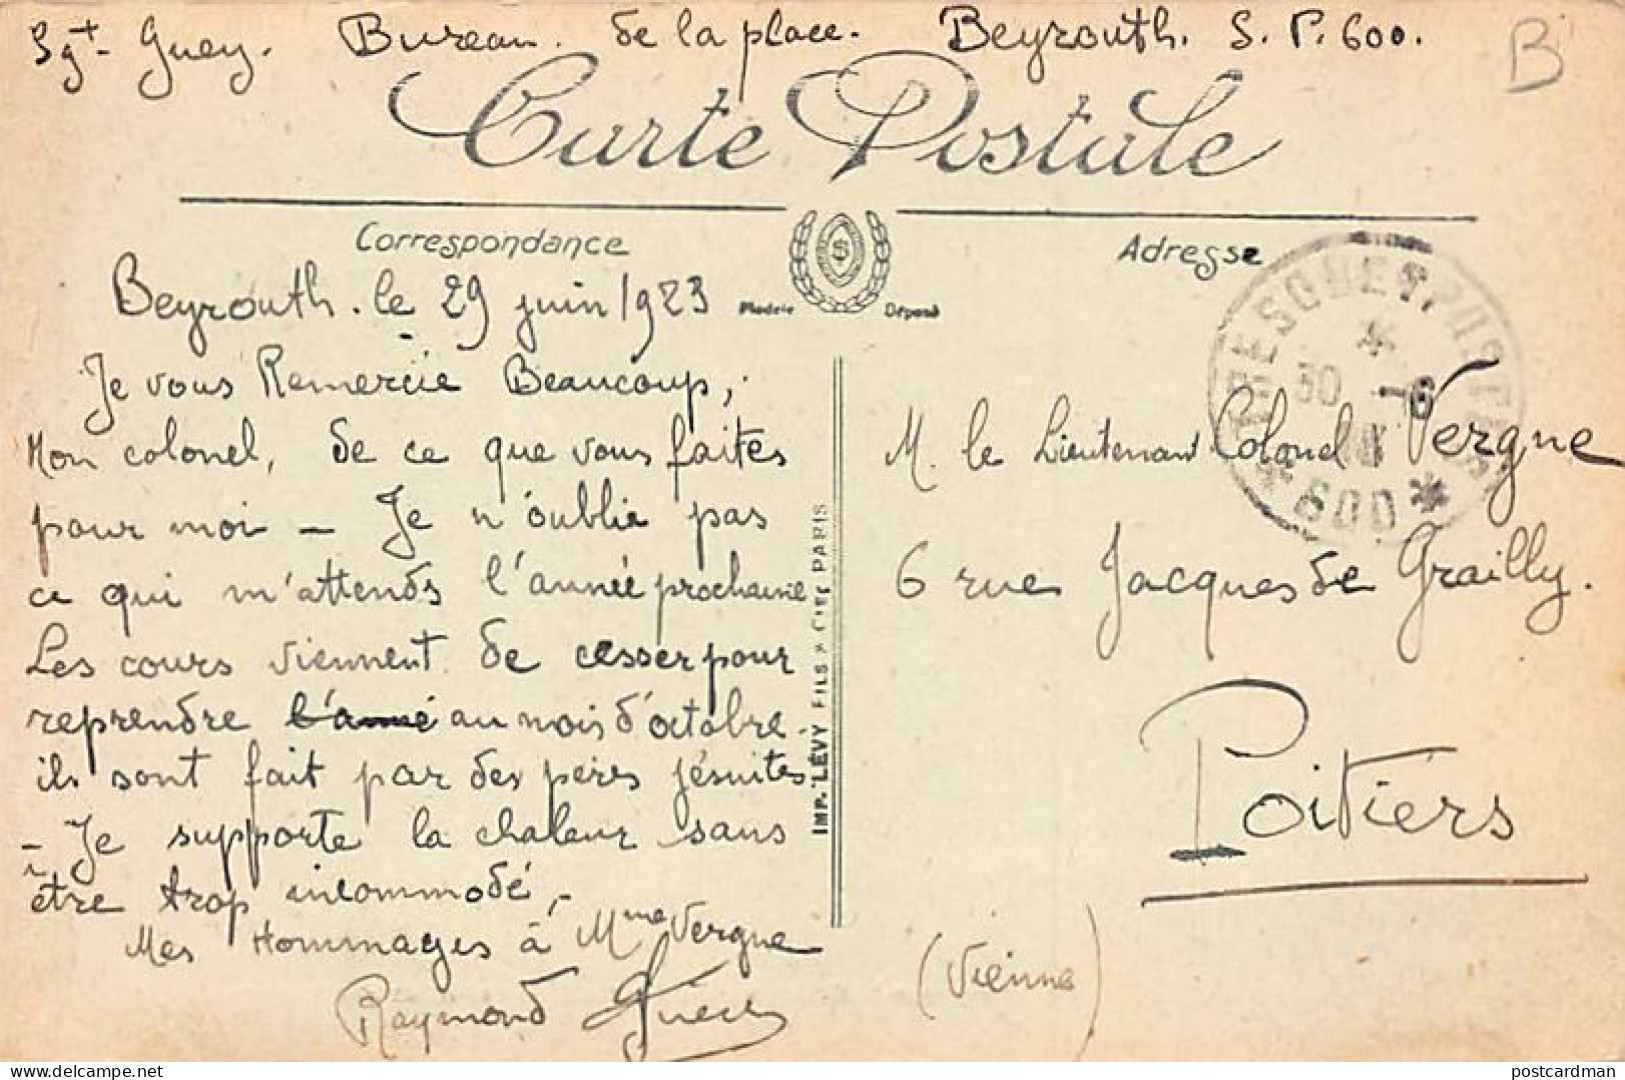 Sgt- Guey. Bureau. de la place. Beyrouth. S. P. 600.
B
Carte Postale
Correspondance
Adresse
Modèle Déposé
Beyrouth. le 29 juin 1923
Je vous Remercie Beaucoup,
Mon colonel, de ce que vous faites
pour moi - Je n'oublie pas
ce qui m'attends l'année prochaine
Les cours viennent de cesser pour
reprendre l'année au mois d'octobre.
ils sont fait par des peres jésuites
- Je supporte la chaleur sans
être trop incommodé,-
Mes Hommages à Mme Vergne
Raymond
IMP. LÉVY FILS & CIE PARIS
M. le Lieutenant Colonel Vergne
6 rue Jacques de Grailly.
Poitiers
(Vienne)
TRESOR ET POSTES
30 -6
* 600 *
postcardman